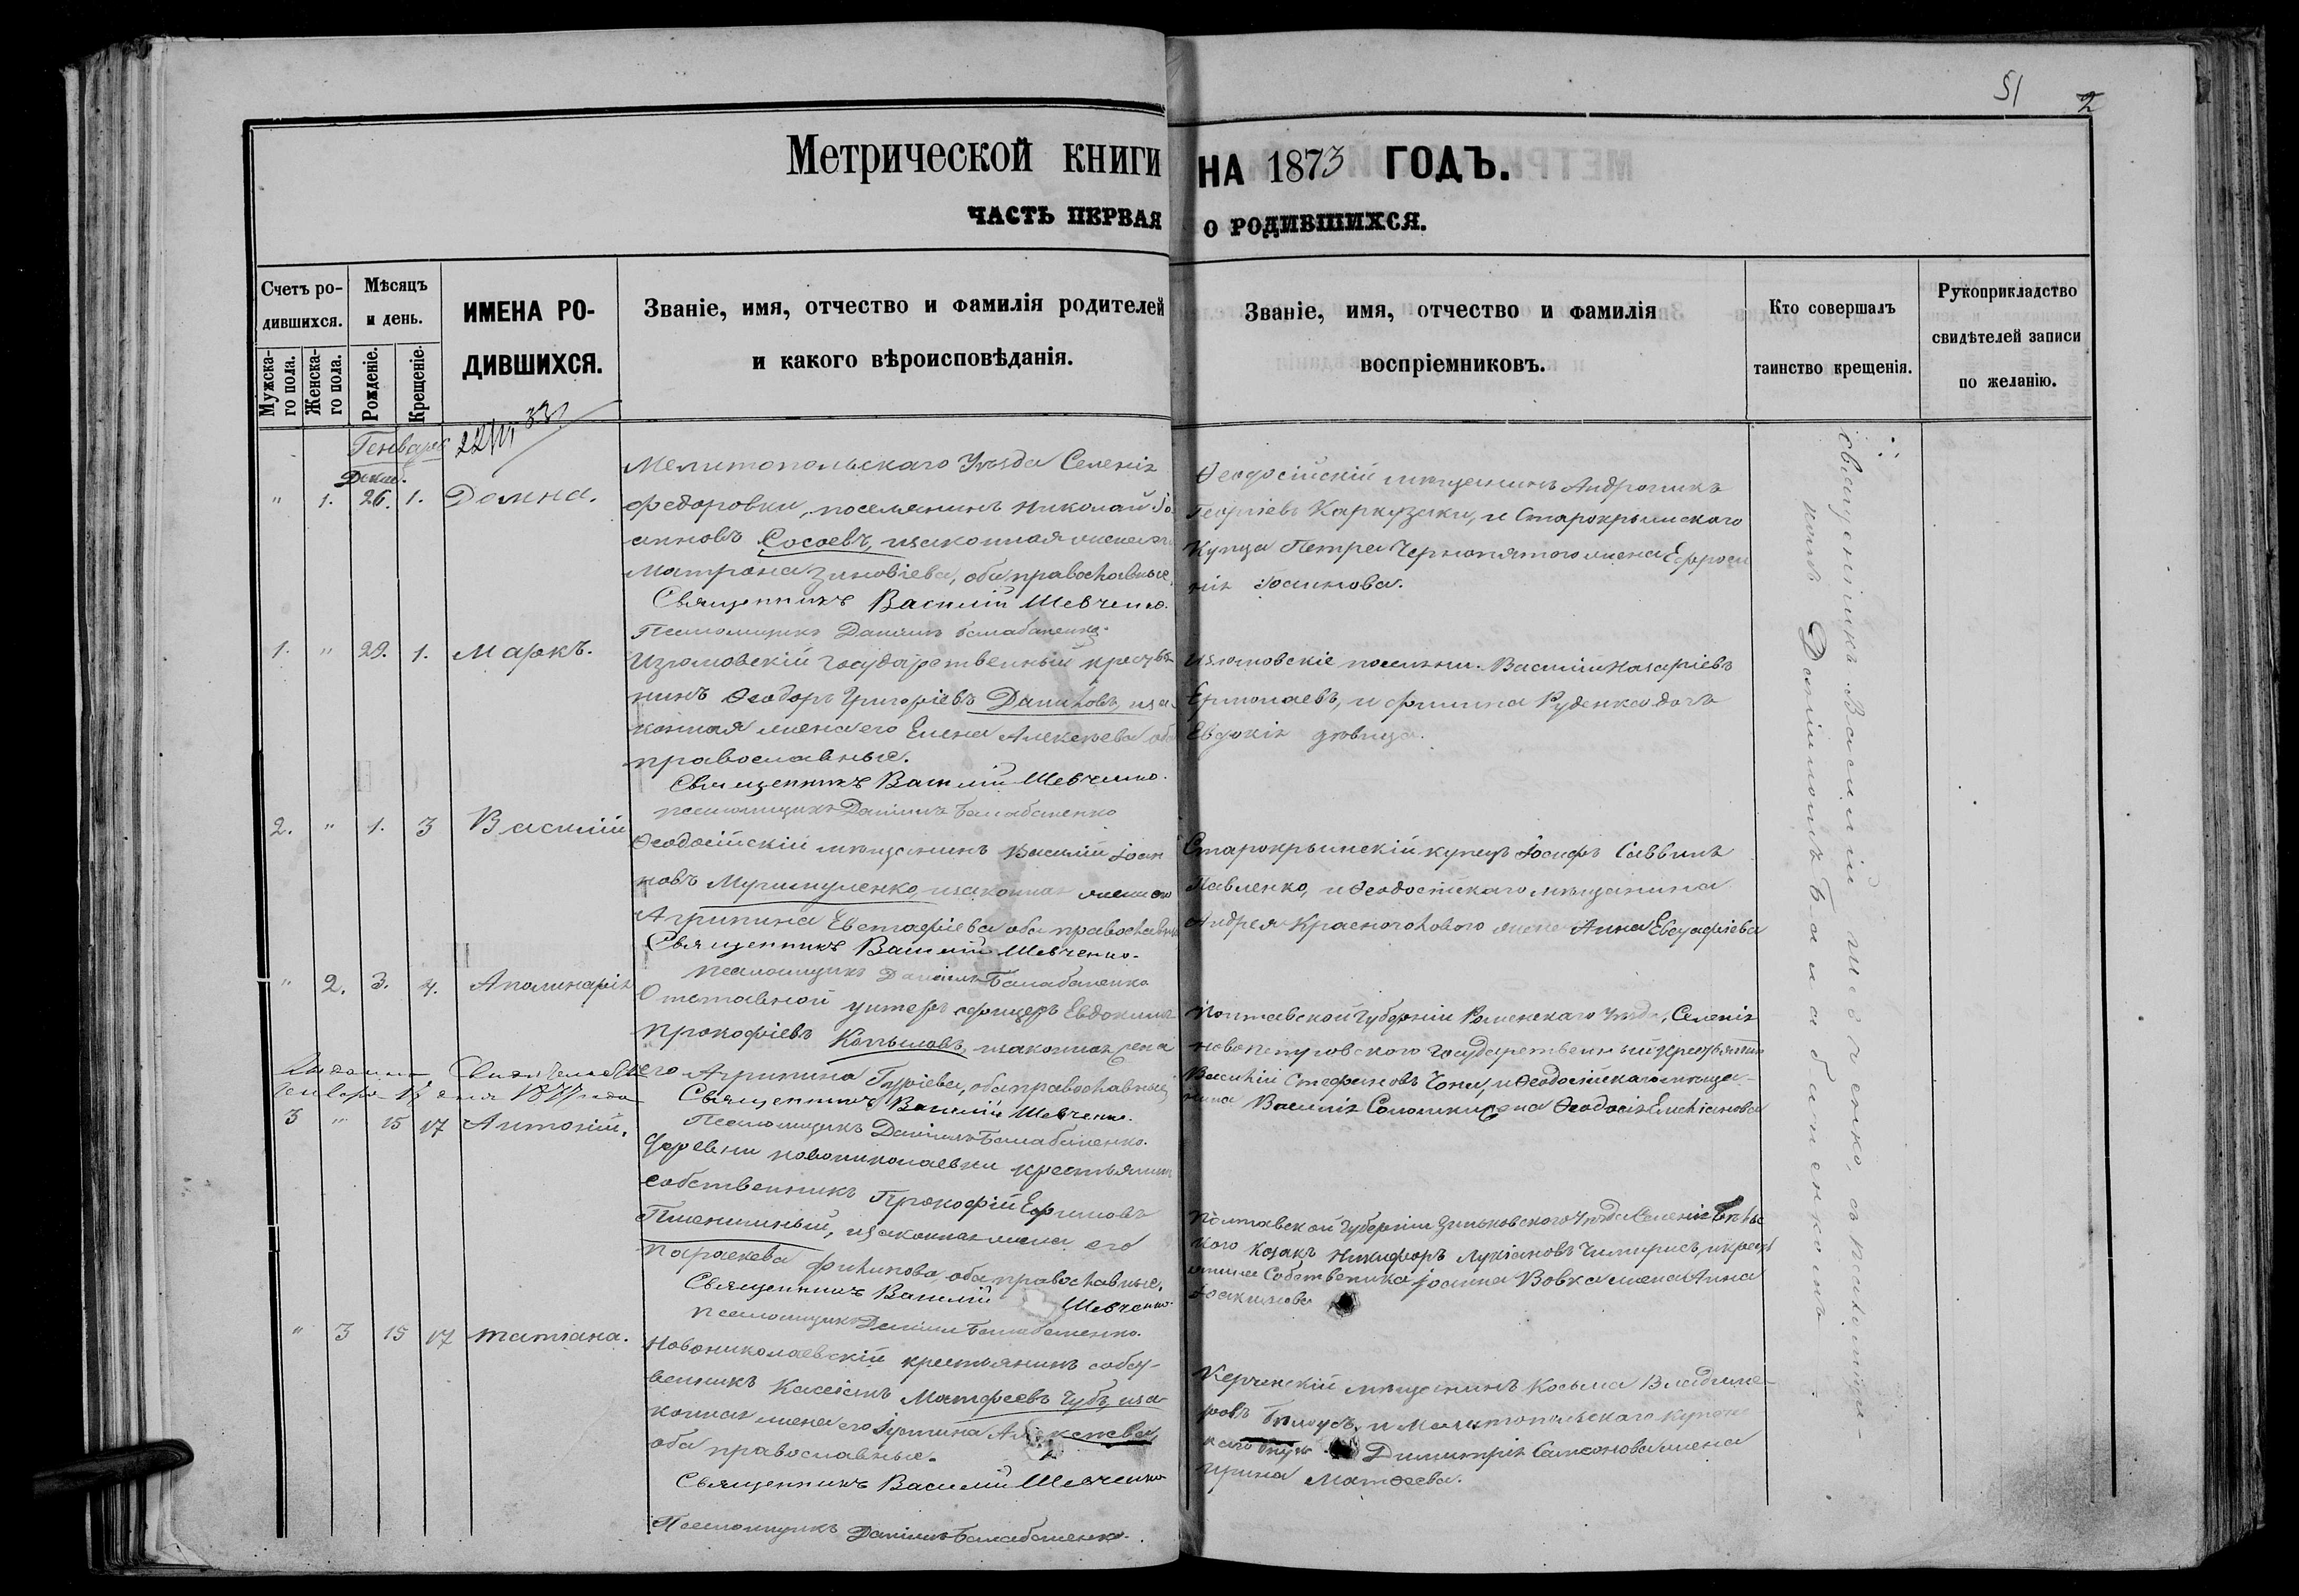 51 2
Метрической книги НА 1873 ГОДЪ.
ЧАСТЬ ПЕРВАЯ О РОДИВШИХСЯ.
Счетъ ро-
дившихся.
Мужска-
го пола.
Женска-
го пола.
Мѣсяцъ
и день.
Рожденіе.
Крещеніе.
ИМЕНА РО-
ДИВШИХСЯ.
Званіе, имя, отчество и фамилія родителей
и какого вѣроисповѣданія.
Званіе, имя, отчество и фамилія
воспріемниковъ.
Кто совершалъ
таинство крещенія.
Рукоприкладство
свидѣтелей записи
по желанію.
Генварь
Декаб.
" 1. 26. 1. Домна.
Мелитопольскаго Уѣзда Селенія
Федоровки, поселянинъ Николай Іо-
анновъ Сосоевъ, изаконная жена его
Матрона Зиновіева, оба православные.
Священникъ Василій Шевченко.
Псаломщикъ Даніилъ Балабаненко.
Ѳеодосійскій мѣщанинъ Андроникъ
Георгіевъ Каркузаки, и Старокрымскаго
Купца Петра Чернопятого жена Ефроси
нія Іоаннова.
1. " 29. 1. Маркъ.
Изюмовскій государственный крестья
нинъ Ѳеодоръ Григоріевъ Даниловъ, иза-
конная жена его Елена Алексѣева оба
православные.
Священникъ Василій Шевченко.
псаломщикъ Даніилъ Балабаненко
Изюмовскіе поселяни. Василій Назаріевъ
Ермолаевъ, и Руденка дочь
Евдокія дѣвица.
2. " 1. 3 Василій
Ѳеодосійскій мѣщанинъ Василій Іоан
новъ изаконная жена его
Агрипина Евстафіева оба православные
Священникъ Василій Шевченко.
псаломщикъ Даніилъ Балабаненко
Старокрымскій купецъ Іосифъ Саввинъ
Павленко, и Ѳеодосійскаго мѣщанина
Андрея Красноголового жена Анна Евстафіева
" 2. 3. 4. Аполинарія
Отставной унтеръ офицеръ Евдокимъ
Прокофіевъ Копыловъ, изаконная жена
его Агрипина Гуріева, оба православные
Священникъ Василій Шевченко.
Псаломщикъ Даніилъ Балабаненко.
Полтавской Губерніи Роменскаго Уѣзда, Селенія
Государственный крестьянин
Василій Стефановъ и Ѳеодосійскаго мѣща-
нина Василія жена Ѳеодосія Емеліанова
3 " 15 17 Антоній.
Деревни новониколаевки крестьянин
собственникъ Прокофій Ефимовъ
Пшеничный, изаконная жена его
Параскева Филипова, оба православные.
Священникъ Василій Шевченко.
псаломщикъ Даніилъ Балабаненко.
Полтавской Губерніи Зиньковскаго Уѣзда Селенія
кого козакъ Никифоръ Лукіановъ и кресть
янина Собственика Іоанна Вовка жена Анна
Іоакимова
" 3 15 17 Татіана.
Новониколаевскій крестьянинъ собст-
венникъ Касіянъ Матфеевъ Чубъ, иза-
конная жена его Іустина Алексѣева,
оба православные.
Священникъ Василій Шевченко
Псаломщикъ Даніилъ Балабаненко.
Керченскій мѣщанинъ Косьма Владиме-
ровъ Билоусъ, и Мелитопольскаго
Димитрія Самсонова жена
Ирина Матѳеева.
священникъ Василій Шевченко, съ псаломщи-
комъ Даніиломъ Балабаненкомъ